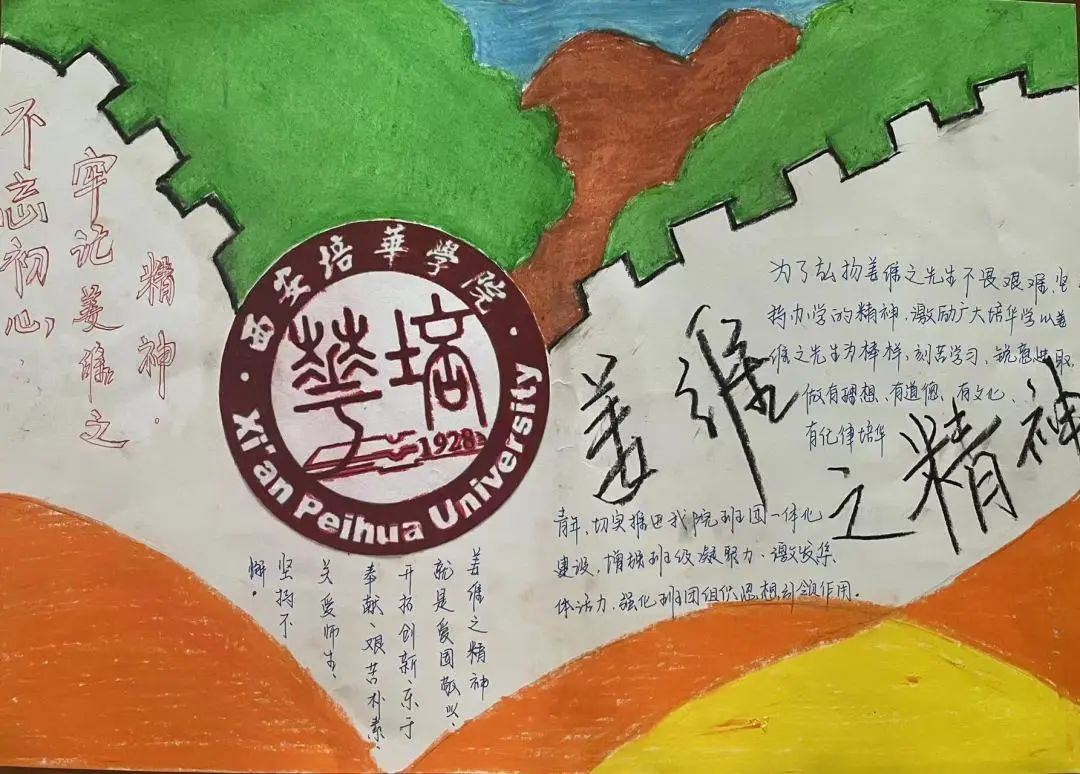 不忘初心，
牢记姜维之
精神.
西安培華学院
華培
1928
Xi'an Peihua University
为了弘扬姜维之先生不畏艰难、坚
持办学的精神，激励广大培华学以姜
维之先生为榜样，刻苦学习，锐意进取，
做有理想、有道德、有文化、
有纪律培华
姜维之精神
青年，切实推进我院班团一体化
建设，增强班级凝聚力、激发集
体活力、强化班团组织思想引领作用。
姜维之精神
就是爱国敬业、
开拓创新、乐于
奉献、艰苦朴素、
关爱师生、
坚持不
懈。